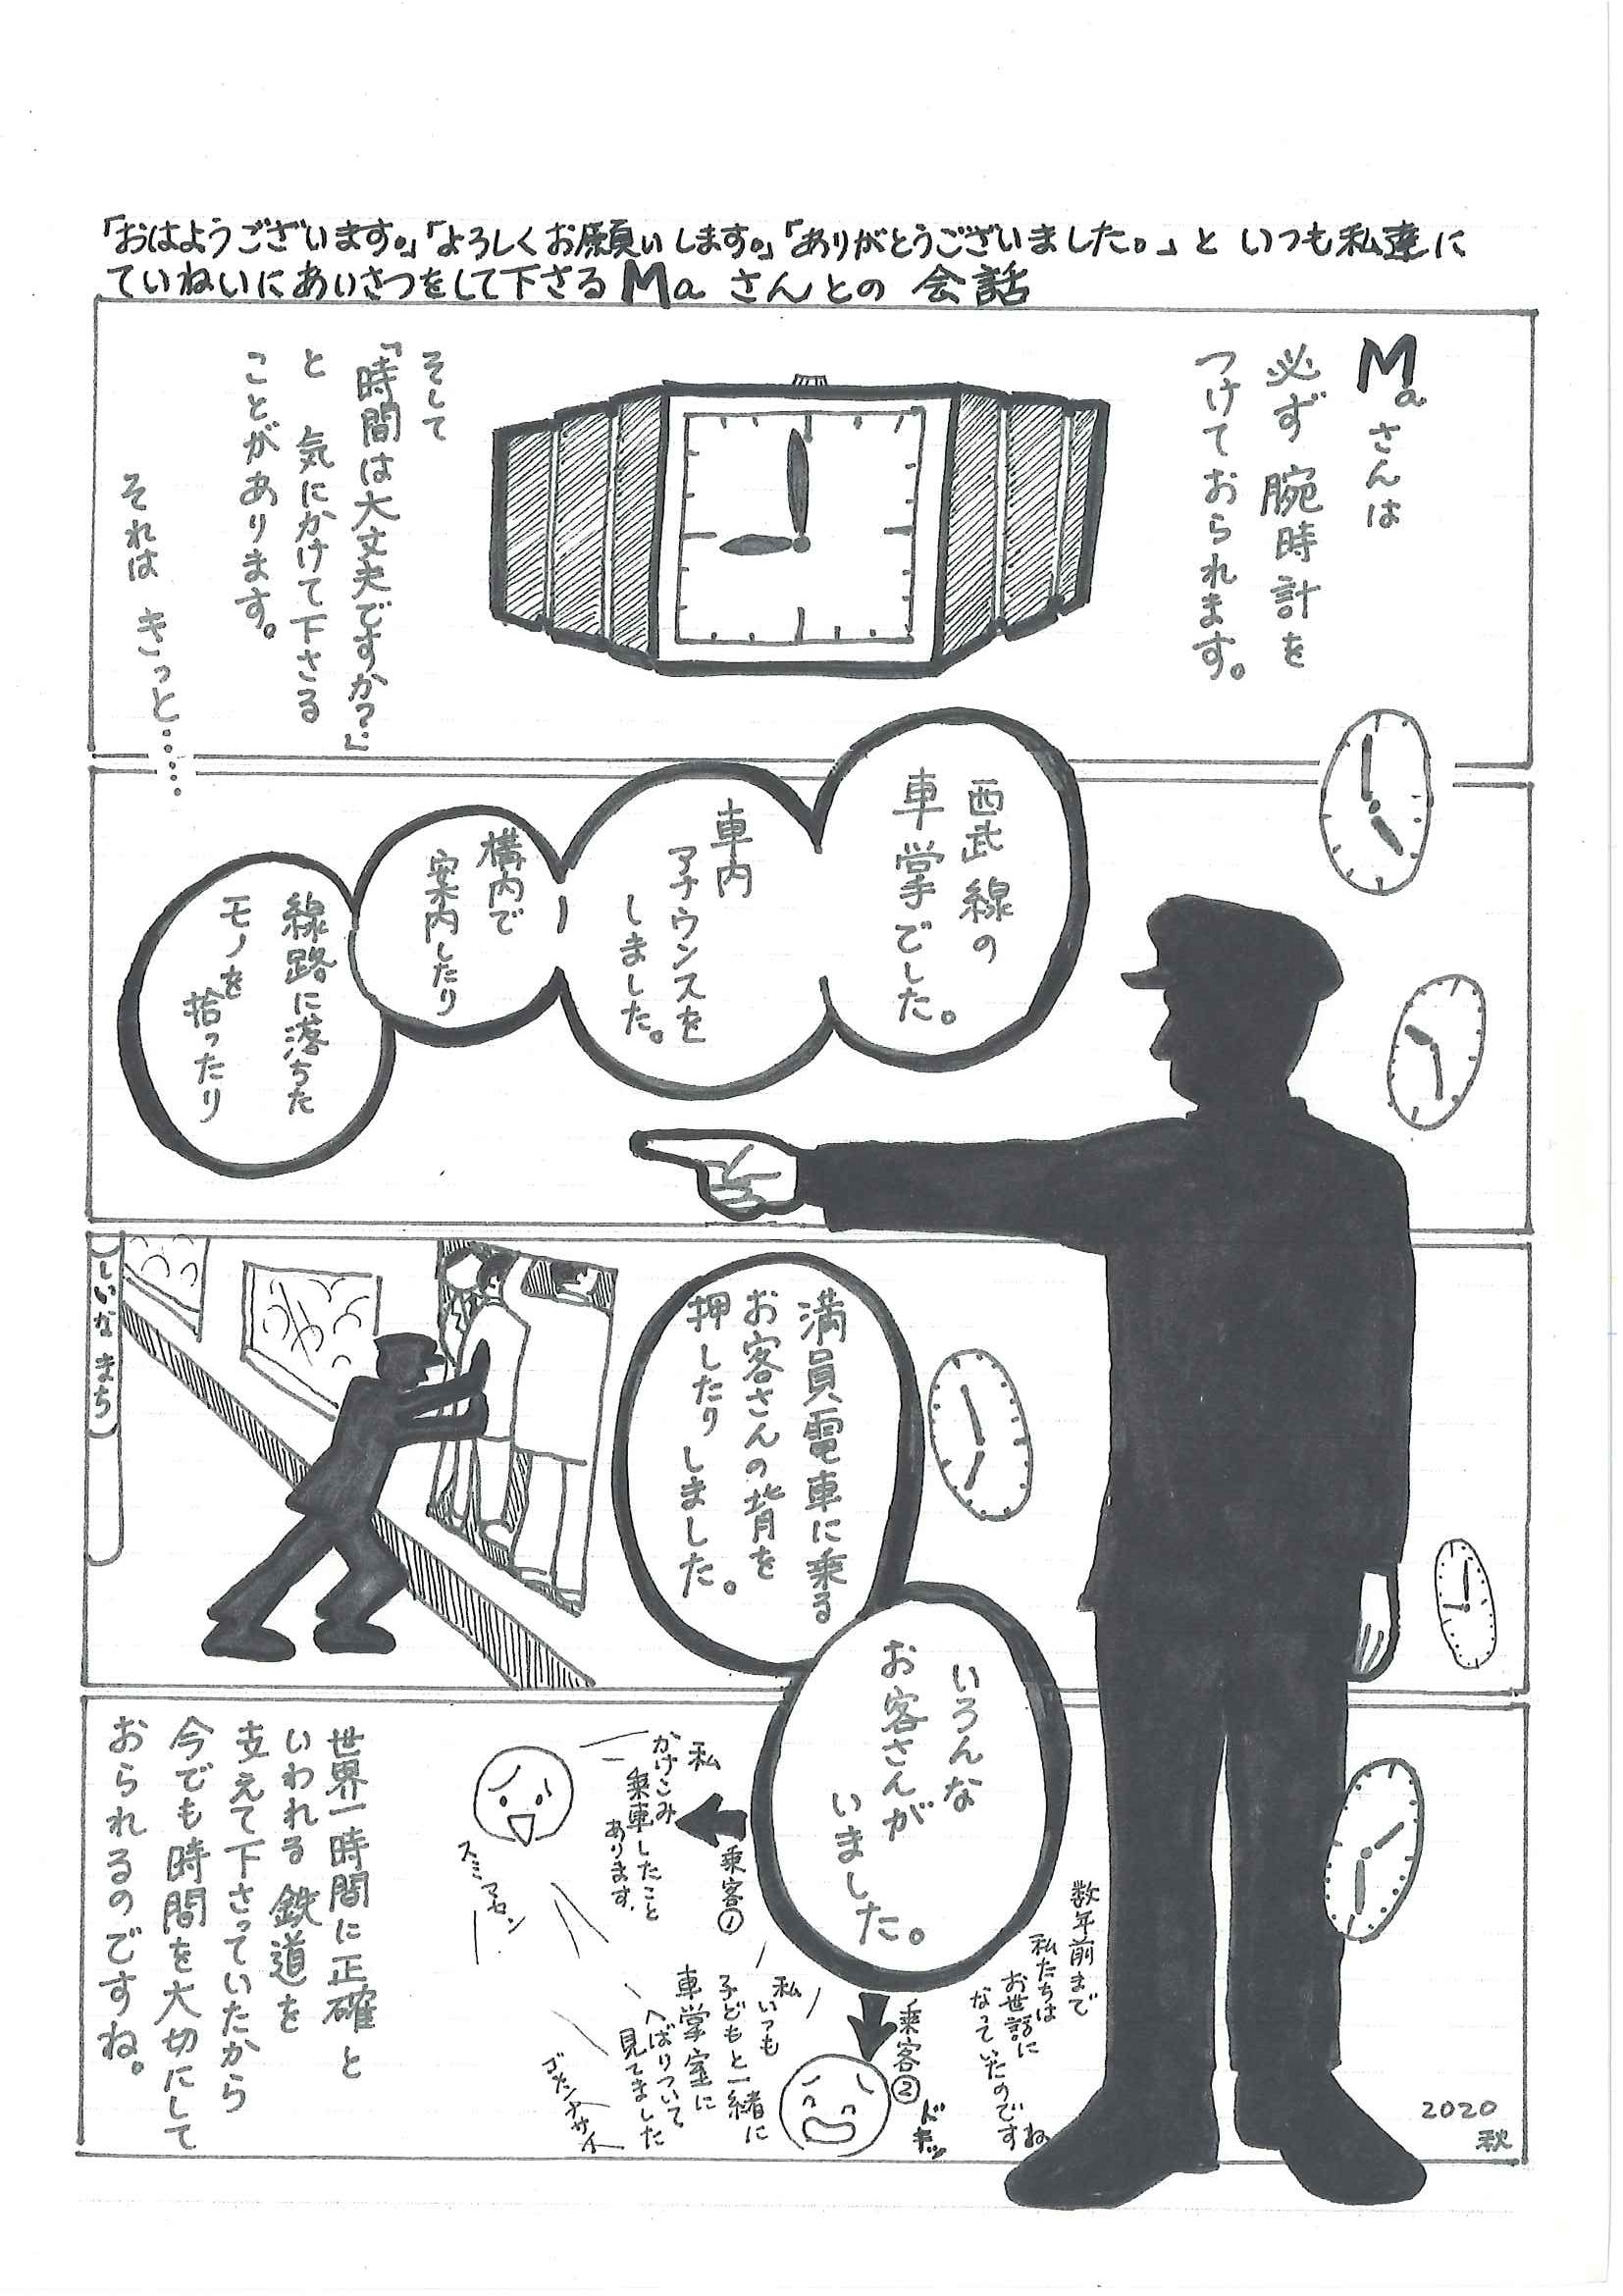 「おはようございます。」「よろしくお願いします。」「ありがとうございました。」と いつも私達に
ていねいにあいさつをして下さる Maさんとの 会話
Maさんは
必ず 腕時計を
つけておられます。
そして
「時間は大丈夫ですか?」
と 気にかけて下さる
ことがあります。
それは きっと……
西武線の
車掌でした。
車内
アナウンスを
しました。
構内で
案内したり
線路に落ちた
モノを
拾ったり
満員電車に乗る
お客さんの背を
押したりしました。
しいなまち
いろんな
お客さんが
いました。
乗客①
私
かけこみ
乗車したこと
あります。
スミマセン
数年前まで
私たちは
お世話に
なっていたのですね
乗客②
ドキッ
私
いつも
子どもと一緒に
車掌室に
へばりついて
見てました
ゴメンナサイ
世界一時間に正確と
いわれる鉄道を
支えて下さっていたから
今でも時間を大切にして
おられるのですね。
2020
秋